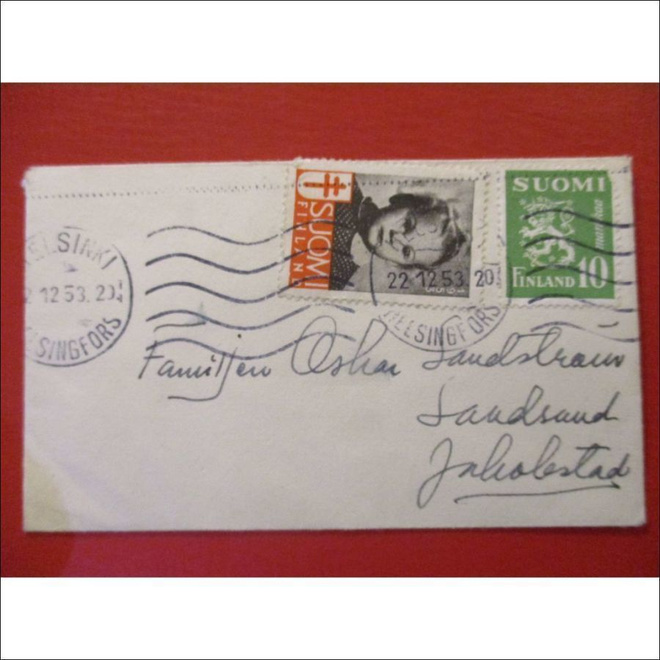 SUOMI
FINLAND
SUOMI
markkaa
FINLAND 10
HELSINKI
22.12.53. 20
HELSINGFORS
22.12.53. 20
HELSINGFORS
Familjen Oskar Sandström
Sandsund
Jakobstad